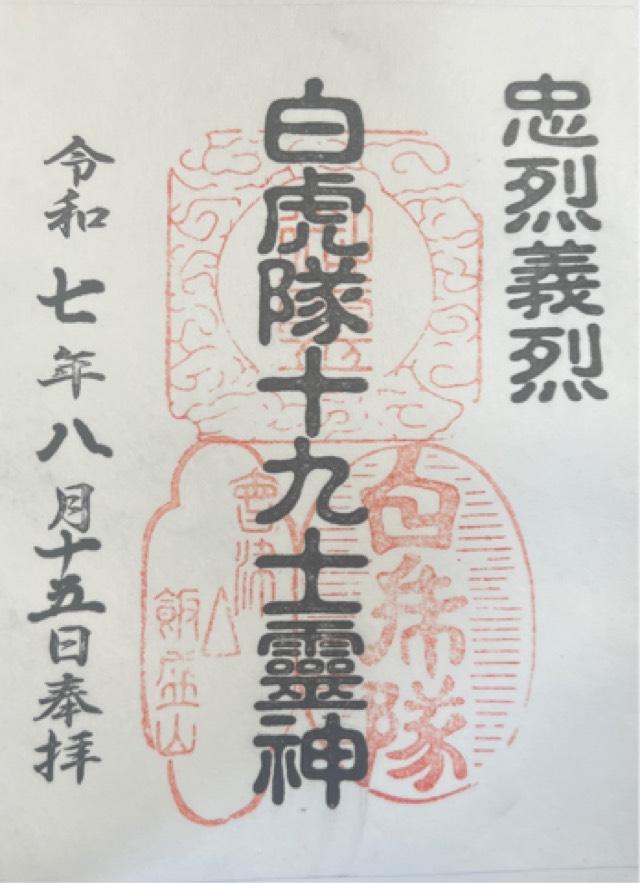 忠烈義烈
白虎隊十九士靈神
白乕隊
會津
飯盛山
令和七年八月十五日奉拝